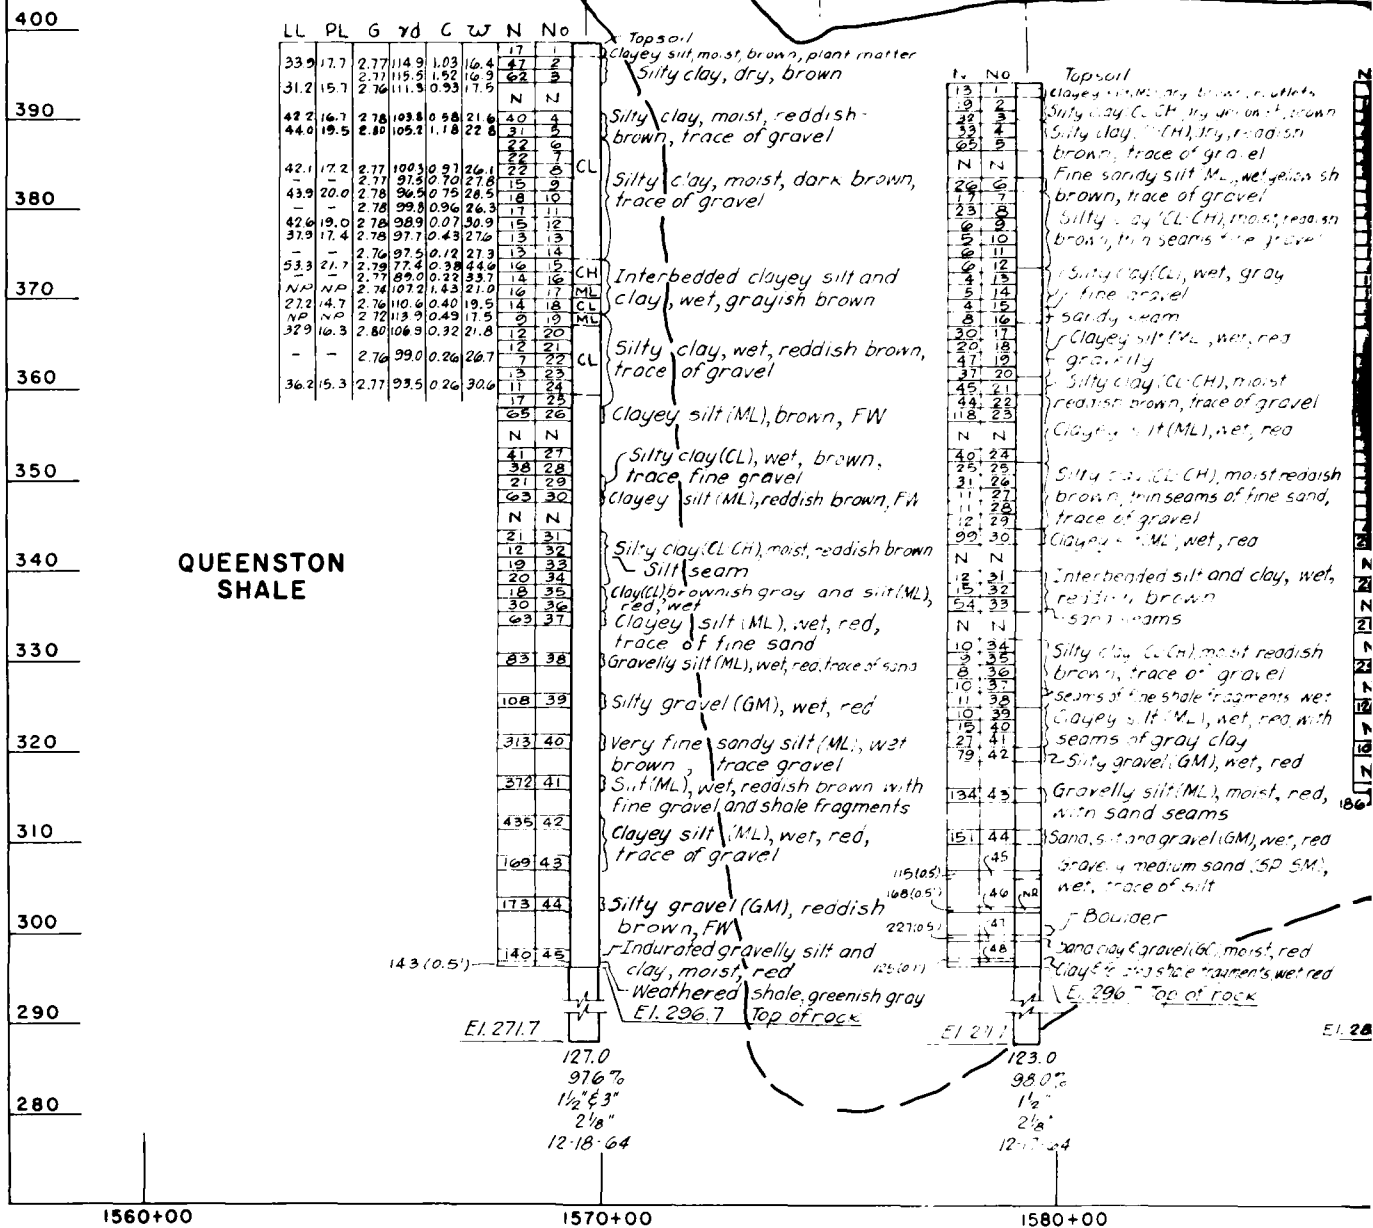 400
390
380
370
360
350
340
330
320
310
300
290
280
QUEENSTON
SHALE
LL PL G γd C W N No
17 1
33.9 17.7 2.77 114.9 1.03 16.4 47 2
2.77 115.5 1.52 16.9 62 3
31.2 15.7 2.76 111.3 0.93 17.5
N N
42.2 16.7 2.78 103.8 0.58 21.6 40 4
44.0 19.5 2.80 105.2 1.18 22.8 31 5
22 6
22 7
42.1 17.2 2.77 100.3 0.97 26.1 22 8
- - 2.77 97.5 0.70 27.8 15 9
43.9 20.0 2.78 96.5 0.75 28.5 18 10
- - 2.78 99.8 0.96 26.3 17 11
42.6 19.0 2.78 98.9 0.07 30.9 15 12
37.9 17.4 2.78 97.7 0.43 27.6 13 13
- - 2.76 97.5 0.12 27.3 13 14
53.3 21.7 2.79 77.4 0.38 44.6 16 15
- - 2.77 89.0 0.22 33.7 14 16
NP NP 2.74 107.2 1.43 21.0 16 17
27.2 14.7 2.76 110.6 0.40 19.5 14 18
NP NP 2.72 113.9 0.49 17.5 9 19
32.9 16.3 2.80 106.9 0.32 21.8 12 20
12 21
- - 2.76 99.0 0.26 26.7 7 22
13 23
36.2 15.3 2.77 93.5 0.26 30.6 11 24
17 25
65 26
N N
41 27
38 28
21 29
63 30
N N
21 31
12 32
19 33
20 34
18 35
30 36
63 37
83 38
108 39
313 40
372 41
435 42
169 43
173 44
140 45
143 (0.5')
CL
CH
ML
CL
ML
CL
Topsoil
Clayey silt, moist, brown, plant matter
Silty clay, dry, brown
Silty clay, moist, reddish
brown, trace of gravel
Silty clay, moist, dark brown,
trace of gravel
Interbedded clayey silt and
clay, wet, grayish brown
Silty clay, wet, reddish brown,
trace of gravel
Clayey silt (ML), brown, FW
Silty clay (CL), wet, brown,
trace fine gravel
Clayey silt (ML), reddish brown, FW
Silty clay (CL-CH), moist, reddish brown
Silt seam
Clay(CL) brownish gray and silt(ML),
red, wet
Clayey silt (ML), wet, red,
trace of fine sand
Gravelly silt (ML), wet, red, trace of sand
Silty gravel (GM), wet, red
Very fine sandy silt (ML), wet
brown, trace gravel
Silt (ML), wet, reddish brown with
fine gravel and shale fragments
Clayey silt (ML), wet, red,
trace of gravel
Silty gravel (GM), reddish
brown, FW
Indurated gravelly silt and
clay, moist, red
Weathered shale, greenish gray
El. 296.7 Top of rock
El. 271.7
127.0
97.6%
1½" & 3"
2⅛"
12-18-64
N No
13 1
19 2
32 3
33 4
65 5
N N
26 6
17 7
23 8
6 9
5 10
6 11
6 12
4 13
5 14
4 15
8 16
30 17
20 18
47 19
37 20
45 21
44 22
118 23
N N
40 24
25 25
31 26
11 27
11 28
12 29
99 30
N N
12 31
15 32
54 33
N N
10 34
9 35
8 36
10 37
11 38
10 39
15 40
27 41
79 42
134 43
151 44
45
115(0.5')
168(0.5') 46 NR
227(0.5') 47
48
125(0.1')
Topsoil
Silty clay (CL-CH), dry
Silty clay, (CH), dry, reddish
brown, trace of gravel
Fine sandy silt ML, wet yellowish
brown, trace of gravel
Silty clay (CL-CH), moist, reddish
brown, thin seams fine gravel
Silty clay (CL), wet, gray
fine gravel
sandy seam
Clayey silt (ML), wet, red
gravelly
Silty clay (CL-CH), moist
reddish brown, trace of gravel
Clayey silt (ML), wet, red
Silty clay (CL-CH), moist reddish
brown, thin seams of fine sand,
trace of gravel
Clayey silt (ML), wet, red
Interbedded silt and clay, wet,
reddish brown
sand seams
Silty clay (CL-CH), moist reddish
brown, trace of gravel
seams of fine shale fragments wet
Clayey silt (ML), wet, red, with
seams of gray clay
Silty gravel (GM), wet, red
Gravelly silt (ML), moist, red,
with sand seams
Sand, silt and gravel (GM), wet, red
Gravelly medium sand (SP-SM),
wet, trace of silt
Boulder
Sand clay & gravel (GC), moist, red
shale fragments, wet red
El. 296.7 Top of rock
123.0
98.0%
1½"
2⅛"
186
El. 28
1560+00 1570+00 1580+00